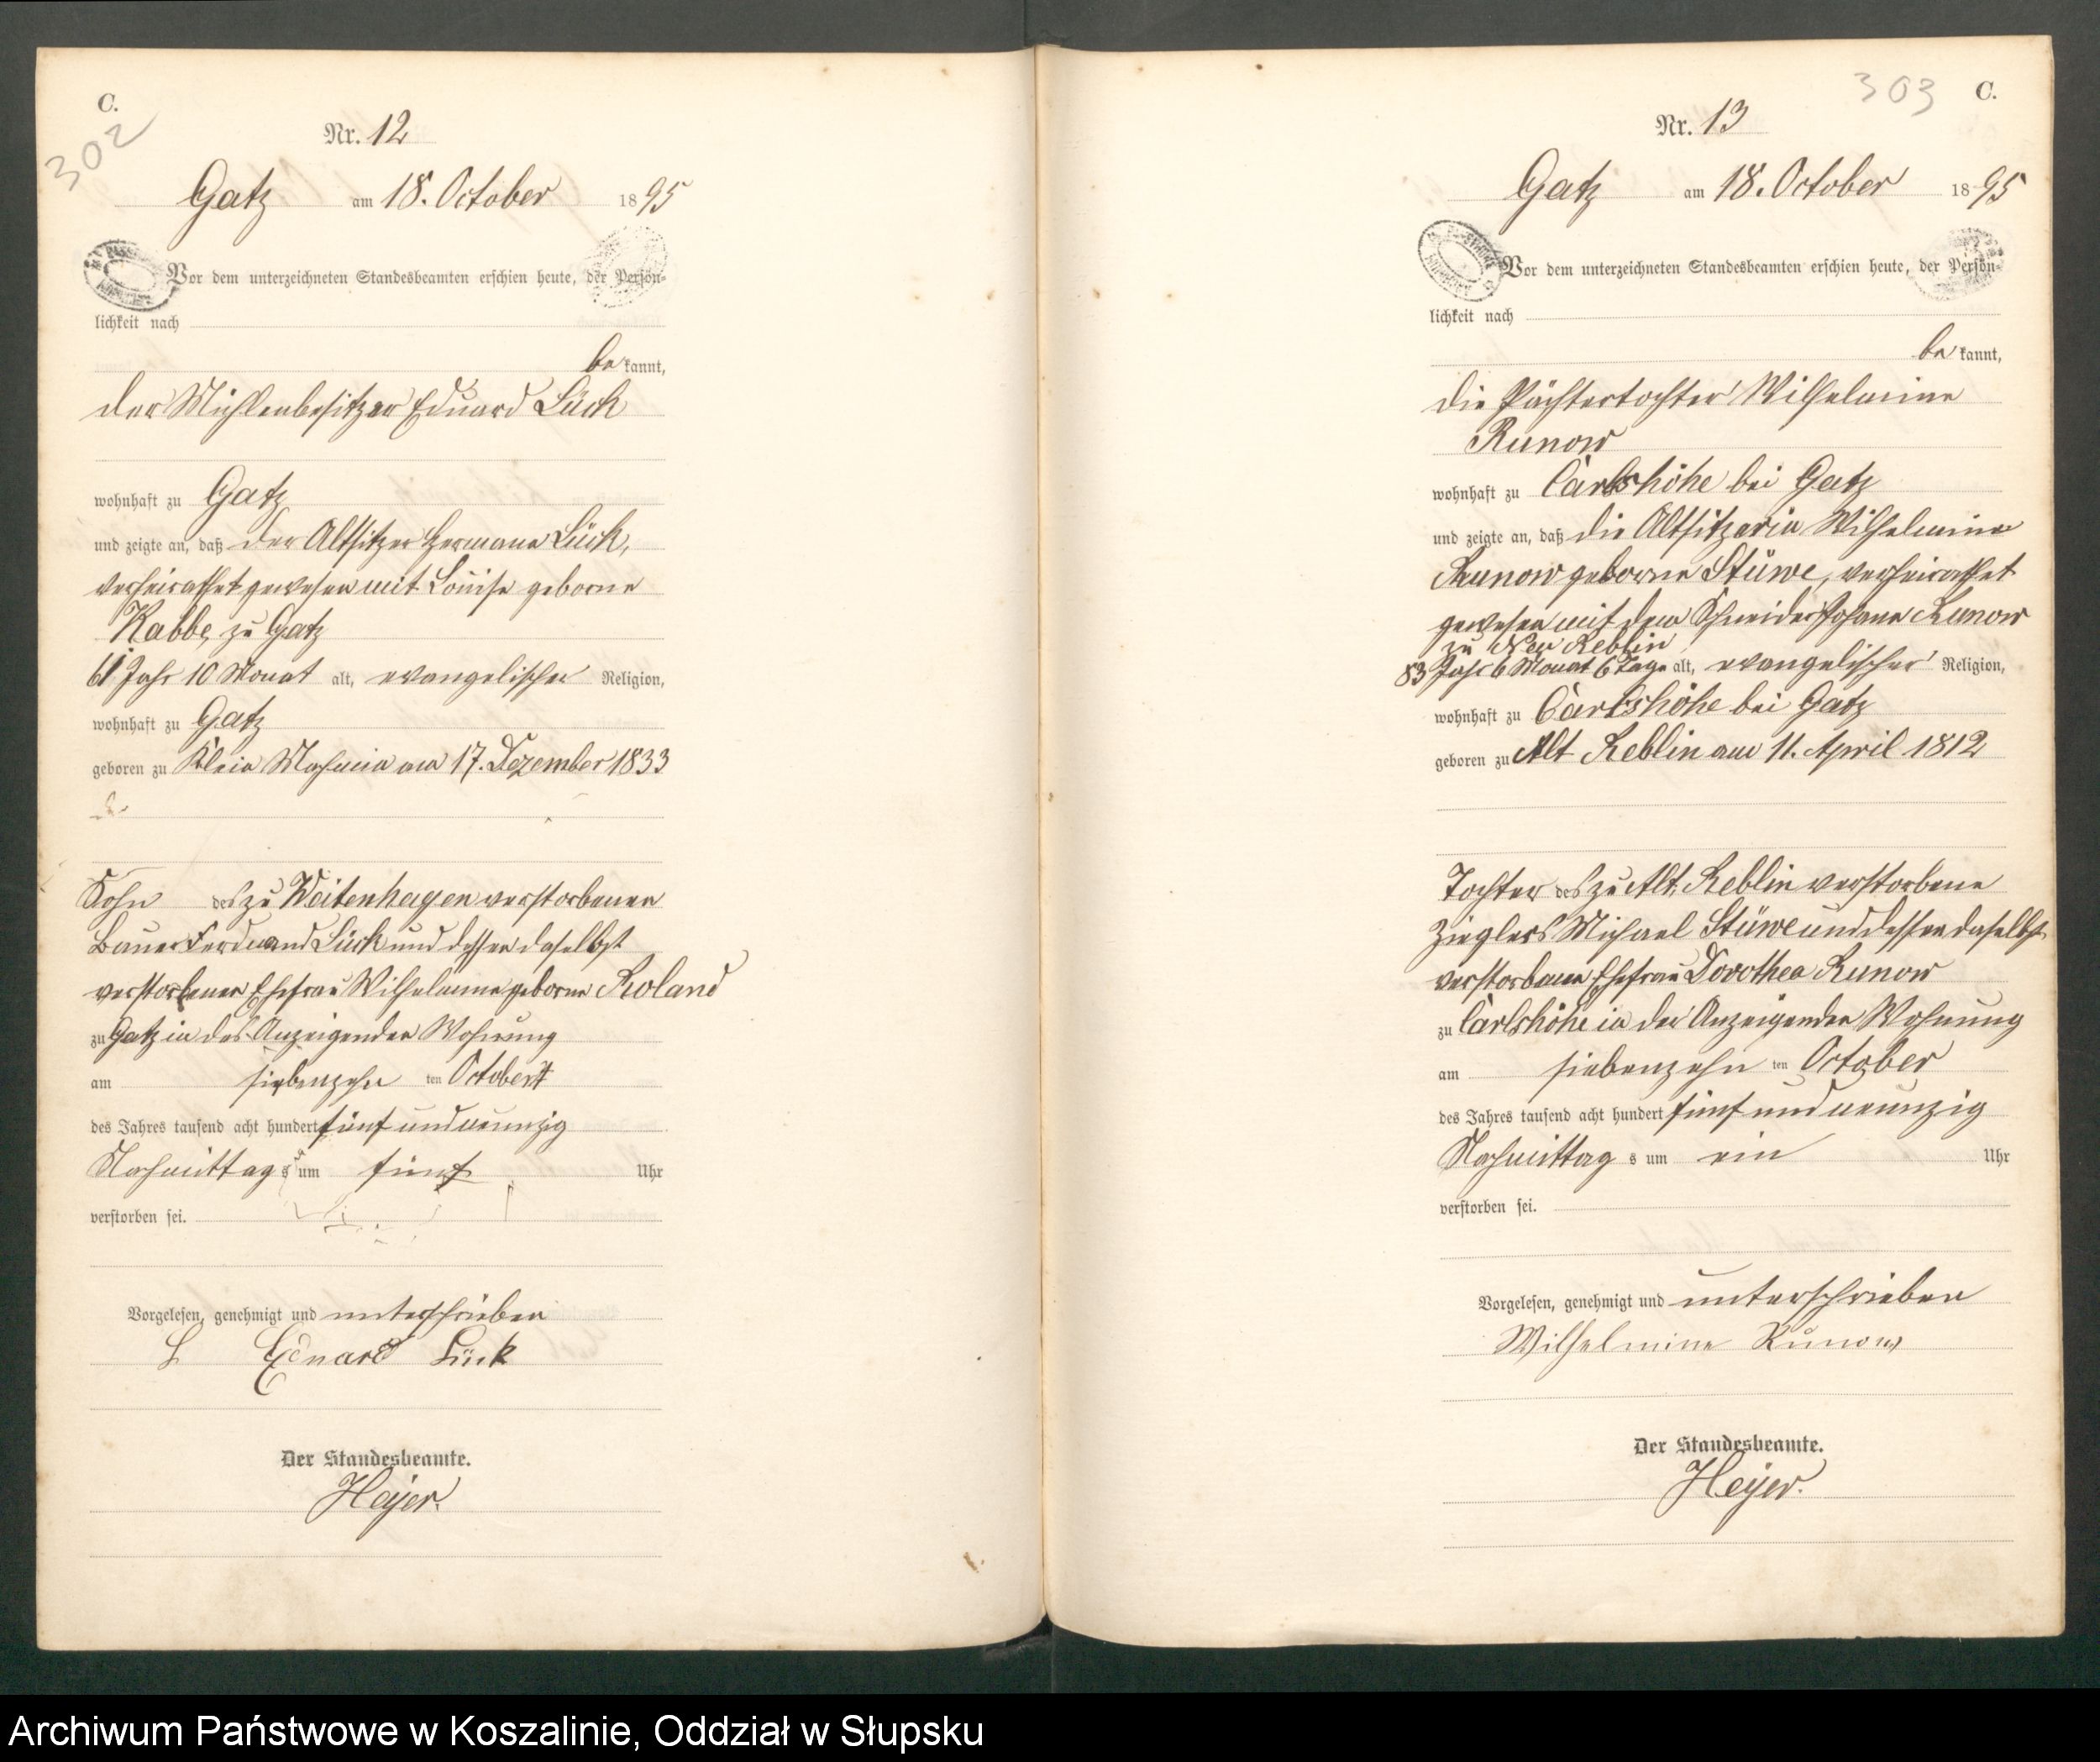 C.
302
Nr. 12
Gatz am 18. October 1895
Vor dem unterzeichneten Standesbeamten erschien heute, der Persön-
lichkeit nach
bekannt,
der Mühlenbesitzer Eduard Lück
wohnhaft zu Gatz
und zeigte an, daß der Altsitzer Hermann Lück,
verheirathet gewesen mit Louise geborne
Kabbe, zu Gatz
61 Jahr 10 Monat alt, evangelischer Religion,
wohnhaft zu Gatz
geboren zu Klein Machmin am 17. Dezember 1833
Sohn des zu Weitenhagen verstorbenen
Bauer Ferdinand Lück und dessen daselbst
verstorbenen Ehefrau Wilhelmine geborne Roland
zu Gatz in des Anzeigenden Wohnung
am siebenzehn ten October
des Jahres tausend acht hundert fünf und neunzig
Nachmittag s um fünf Uhr
verstorben sei.
Vorgelesen, genehmigt und unterschrieben
L Eduard Lück
Der Standesbeamte.
Heyer.
303 C.
Nr. 13
Gatz am 18. October 1895
Vor dem unterzeichneten Standesbeamten erschien heute, der Persön-
lichkeit nach
bekannt,
die Pächtertochter Wilhelmine
Runow
wohnhaft zu Carlshöhe bei Gatz
und zeigte an, daß die Altsitzerin Wilhelmine
Runow geborne Stüwe, verheirathet
gewesen mit dem Schneider Johann Runow
zu Neu Reblin
83 Jahr 6 Monat 6 Tage alt, evangelischer Religion,
wohnhaft zu Carlshöhe bei Gatz
geboren zu Alt Reblin am 11. April 1812
Tochter des zu Alt Reblin verstorbene
Zieglers Michael Stüwe und dessen daselbst
verstorbenen Ehefrau Dorothea Runow
zu Carlshöhe in der Anzeigenden Wohnung
am siebenzehn ten October
des Jahres tausend acht hundert fünf und neunzig
Nachmittag s um ein Uhr
verstorben sei.
Vorgelesen, genehmigt und unterschrieben
Wilhelmine Runow
Der Standesbeamte.
Heyer.
Archiwum Państwowe w Koszalinie, Oddział w Słupsku